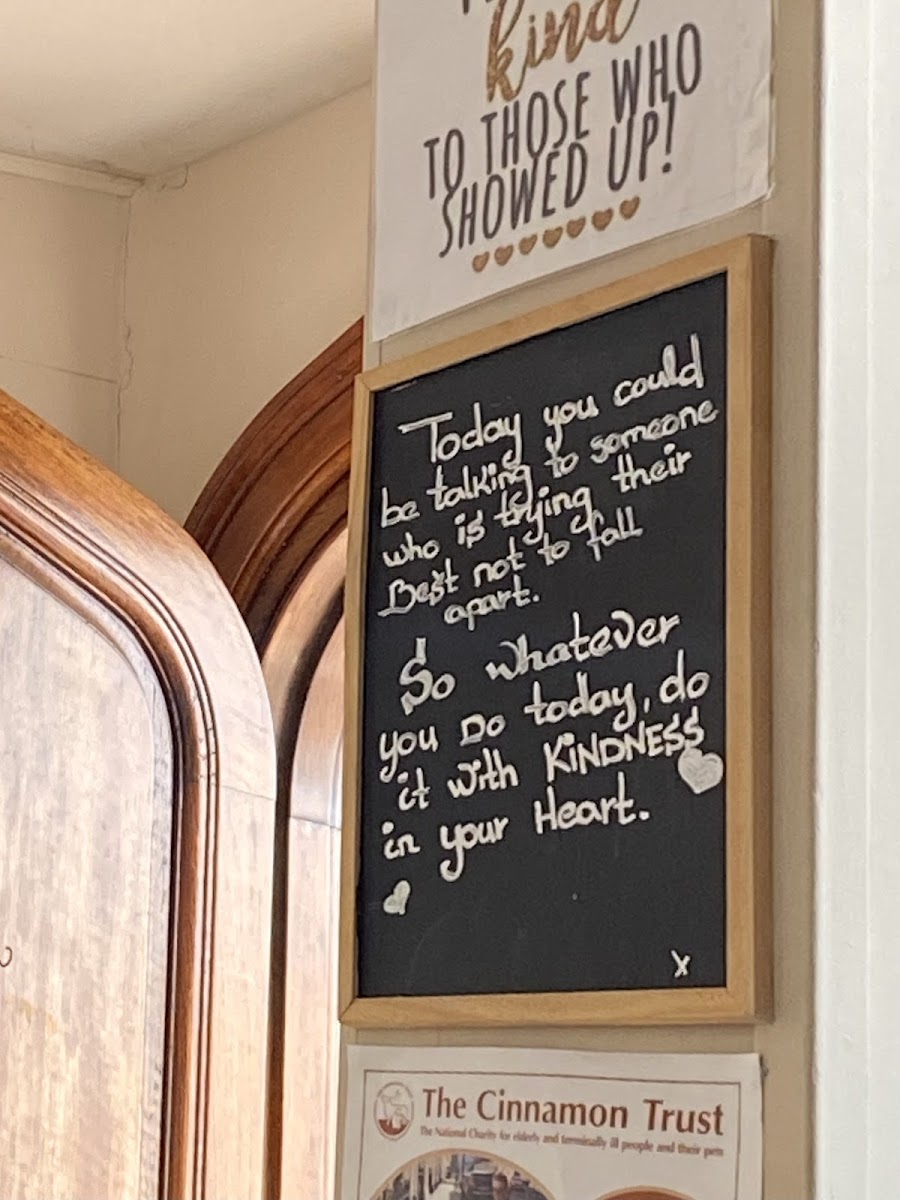 kind
TO THOSE WHO
SHOWED UP!
Today you could
be talking to someone
who is trying their
Best not to fall
apart.
So whatever
you Do today, do
it with KiNDNESS
in your Heart.
x
The Cinnamon Trust
The National Charity for elderly and terminally ill people and their pets